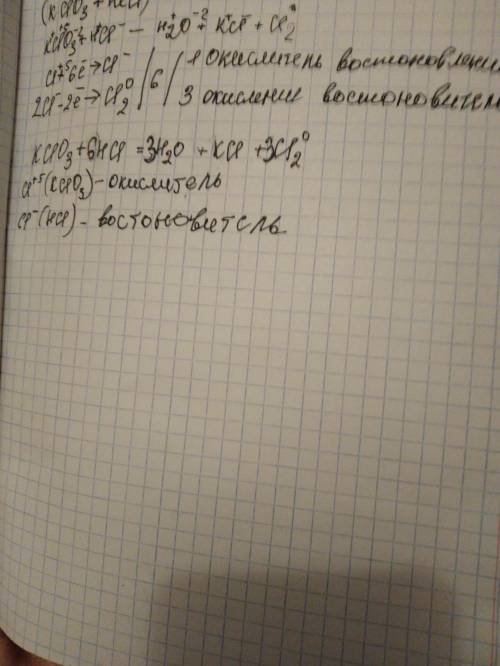 (KClO₃ + HCl)
K⁺Cl⁺⁵O₃⁻² + H⁺Cl⁻ — H₂⁺O⁻² + K⁺Cl⁻ + Cl₂⁰
Cl⁺⁵+6ē→Cl⁻ | 6 | 1 окислитель востоновлени
2Cl⁻-2ē→Cl₂⁰ 3 окислении востоновитель
KClO₃ + 6HCl = 3H₂O + KCl + 3Cl₂⁰
Cl⁺⁵(KClO₃) - окислитель
Cl⁻(HCl) - востоновитель